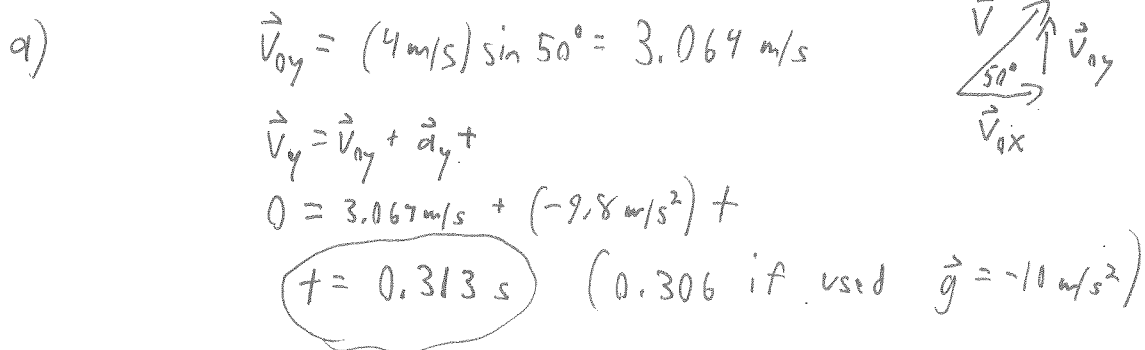 a) V⃗₀y = (4 m/s) sin 50° = 3.064 m/s
V⃗ 50° V⃗₀y
V⃗₀x
V⃗y = V⃗₀y + a⃗y t
0 = 3.064 m/s + (-9.8 m/s²) t
t = 0.313 s (0.306 if used g⃗ = -10 m/s²)